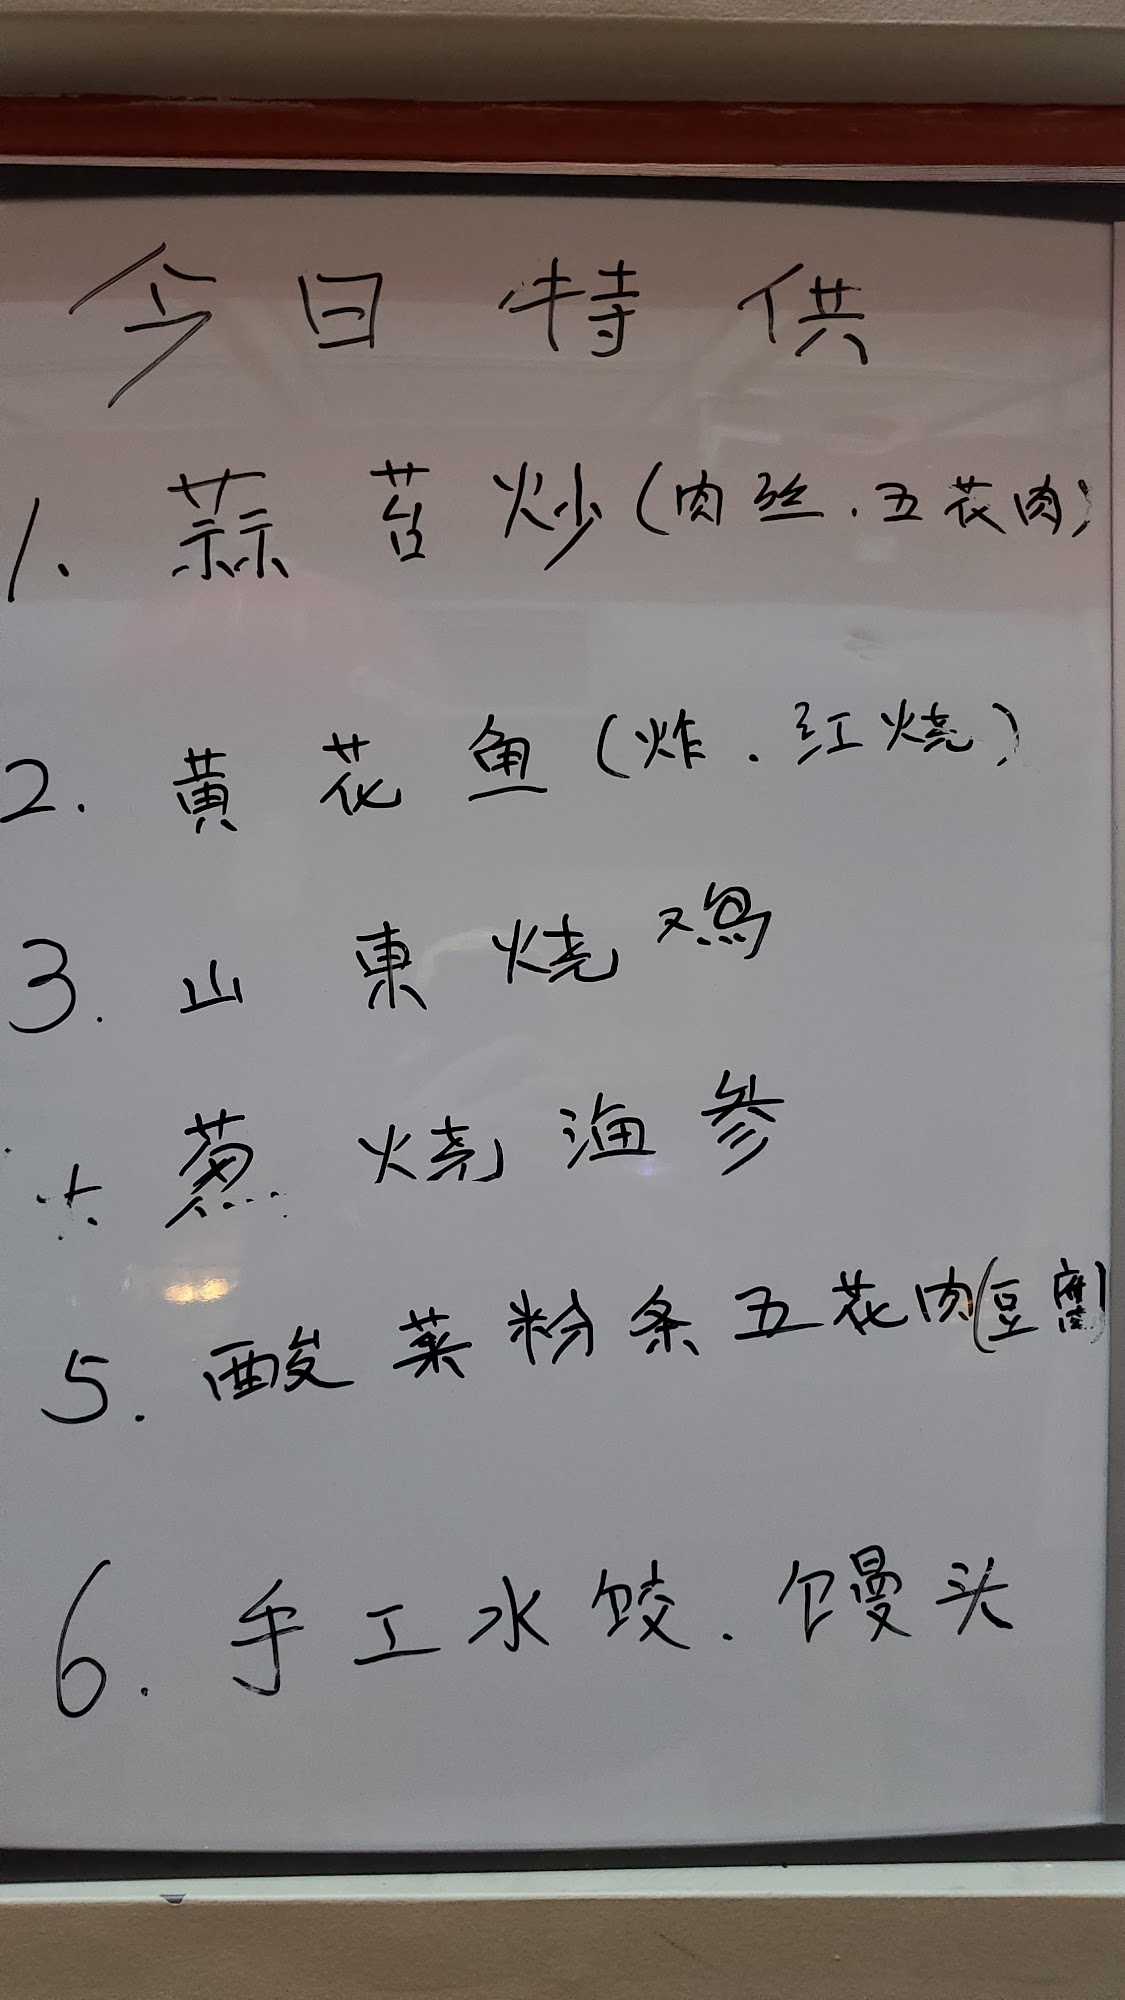 今日特供
1. 蒜苔炒(肉丝.五花肉)
2. 黄花鱼(炸.红烧)
3. 山東烧鸡
葱烧海参
5. 酸菜粉条五花肉(豆腐)
6. 手工水饺.馒头